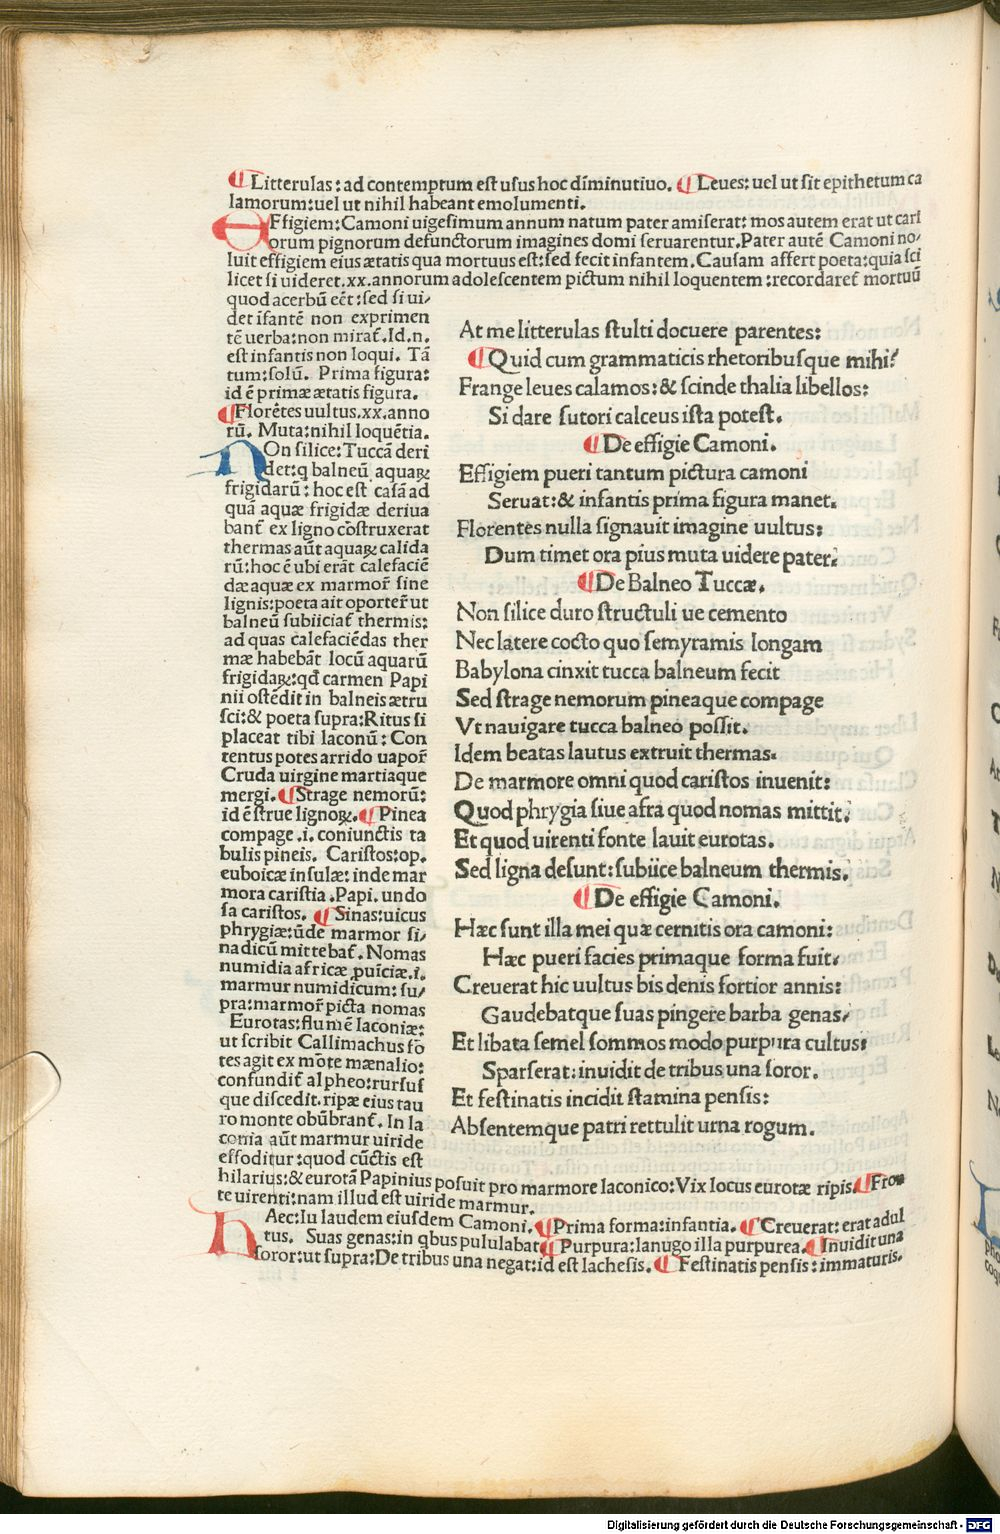 ¶Litterulas: ad contemptum est usus hoc diminutiuo. ¶Leues: uel ut sit epithetum ca
lamorum: uel ut nihil habeant emolumenti.
EFfigiem: Camoni uigesimum annum natum pater amiserat: mos autem erat ut carī
orum pignorum defunctorum imagines domi seruarentur. Pater autē Camoni no/
luit effigiem eius ætatis qua mortuus est: sed fecit infantem. Causam affert poeta: quia sci
licet si uideret .xx. annorum adolescentem pictum nihil loquentem: recordaret̄ mortuū
quod acerbū eēt: sed si ui/
det īfantē non exprimen
tē uerba: non mirat̄. Id. n.
est infantis non loqui. Tā
tum: solū. Prima figura:
id ē primæ ætatis figura.
¶Florētes uultus. xx. anno
rū. Muta: nihil loquētia.
NOn silice: Tuccā deri
det: q balneū aquaꝝ
frigidarū: hoc est casā ad
quā aquæ frigidæ deriua
bant̄ ex ligno cōstruxerat
thermas aūt aquaꝝ calida
rū: hoc ē ubi erāt calefaciē
dæ aquæ ex marmor̄ sine
lignis: poeta ait oporter̄ ut
balneū subiiciat̄ thermis:
ad quas calefaciēdas ther
mæ habebāt locū aquarū
frigidaꝝ: qđ carmen Papi
nii ostēdit in balneis ætru
sci: & poeta supra: Ritus si
placeat tibi laconū: Con
tentus potes arrido uapor̄
Cruda uirgine martiaque
mergi. ¶Strage nemorū:
id ē strue lignoꝝ. ¶Pinea
compage .i. coniunctis ta
bulis pineis. Caristos: op.
euboicæ insulæ: inde mar
mora caristia. Papi. undo
sa caristos. ¶Sinas: uicus
phrygiæ: ūde marmor si/
nadicū mittebat̄. Nomas
numidia africæ puīciæ .i.
marmur numidicum: su/
pra: marmor̄ picta nomas
Eurotas: flumē laconiæ:
ut scribit Callimachus fō
tes agit ex mōte mænalio:
confundit̄ alpheo: rursus
que discedit. ripæ eius tau
ro monte obūbrant̄. In la
conia aūt marmur uiride
effoditur: quod cūctis est
hilarius: & eurotā Papinius posuit pro marmore laconico: Vix locus eurotæ ripis. ¶Fron
te uirenti: nam illud est uiride marmur.
HAec: In laudem eiusdem Camoni. ¶Prima forma: infantia. ¶Creuerat: erat adul
tus. Suas genas: in qbus pululabat ¶Purpura: lanugo illa purpurea. ¶Inuidit una
soror: ut supra: De tribus una negat: id est lachesis. ¶Festinatis pensis: immaturis.
At me litterulas stulti docuere parentes:
¶Quid cum grammaticis rhetoribusque mihi?
Frange leues calamos: & scinde thalia libellos:
Si dare sutori calceus ista potest.
¶De effigie Camoni.
Effigiem pueri tantum pictura camoni
Seruat: & infantis prima figura manet.
Florentes nulla signauit imagine uultus:
Dum timet ora pius muta uidere pater.
¶De Balneo Tuccæ.
Non silice duro structuli ue cemento
Nec latere cocto quo semyramis longam
Babylona cinxit tucca balneum fecit
Sed strage nemorum pineaque compage
Vt nauigare tucca balneo possit.
Idem beatas lautus extruit thermas.
De marmore omni quod caristos inuenit:
Quod phrygia siue afra quod nomas mittit.
Et quod uirenti fonte lauit eurotas.
Sed ligna desunt: subiice balneum thermis.
¶De effigie Camoni.
Hæc sunt illa mei quæ cernitis ora camoni:
Hæc pueri facies primaque forma fuit.
Creuerat hic uultus bis denis fortior annis:
Gaudebatque suas pingere barba genas.
Et libata semel sommos modo purpura cultus:
Sparserat: inuidit de tribus una soror.
Et festinatis incidit stamina pensis:
Absentemque patri rettulit urna rogum.
Digitalisierung gefördert durch die Deutsche Forschungsgemeinschaft - DFG